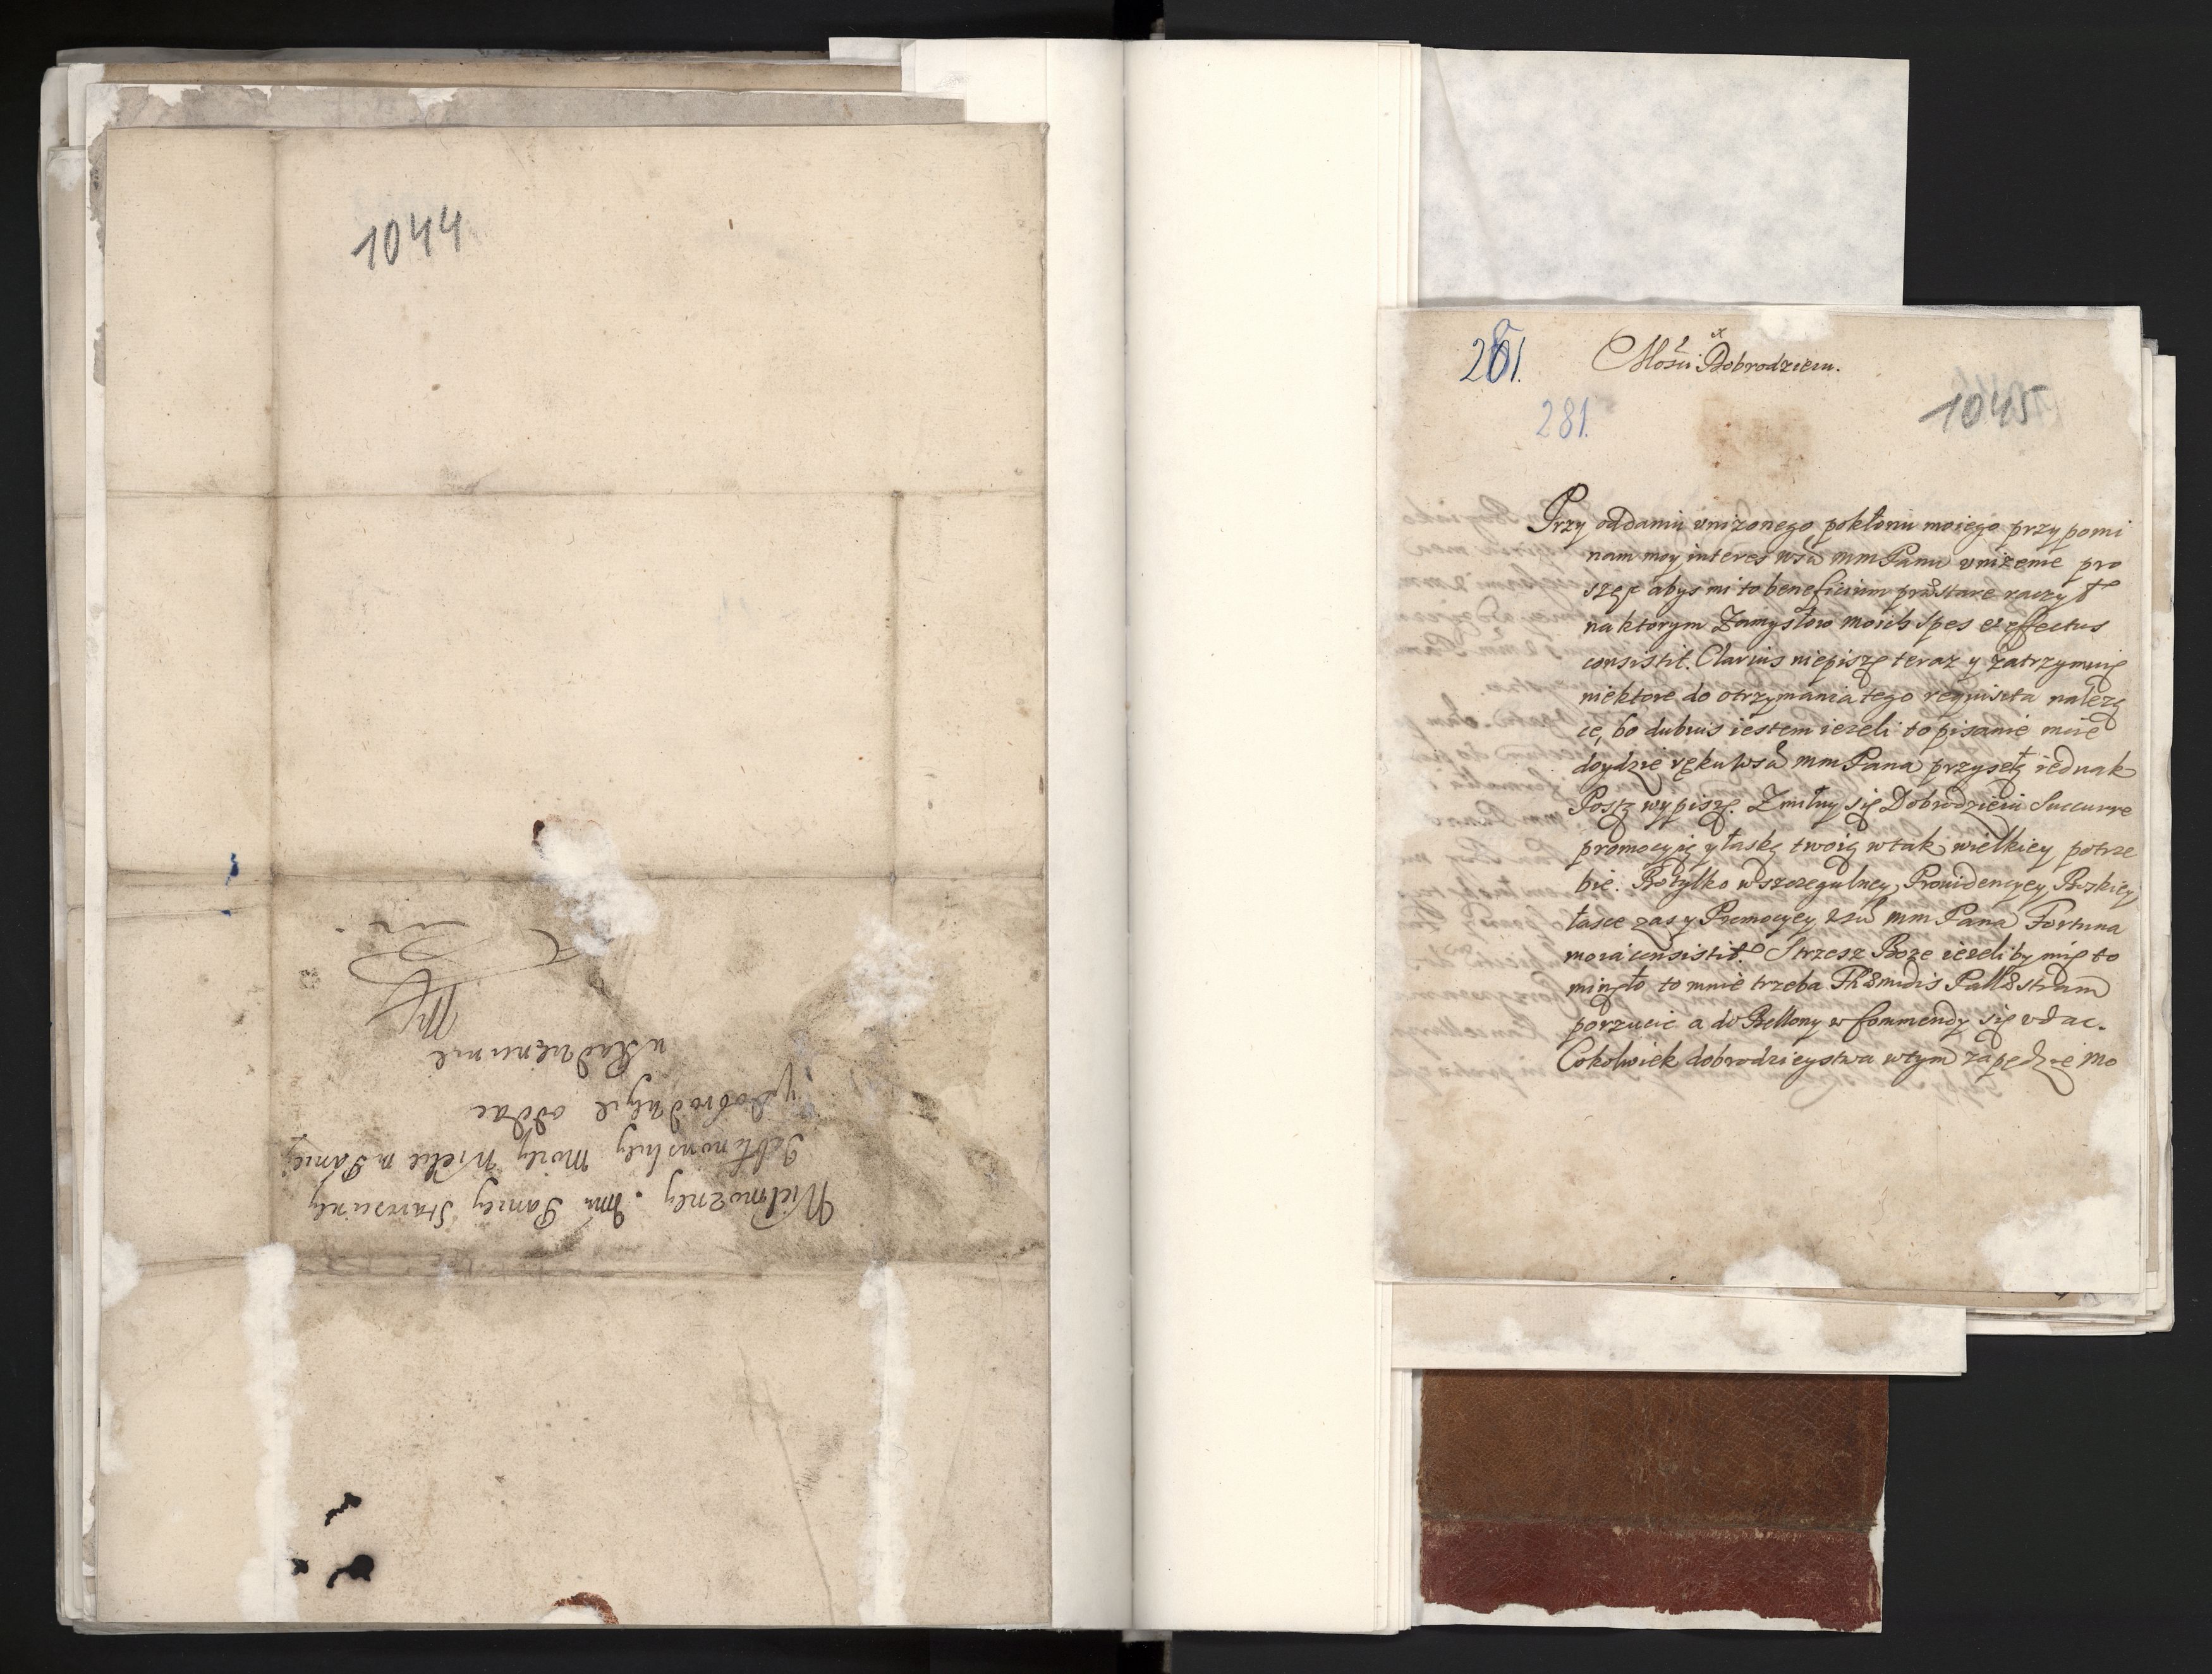 1044
Wielmozney Jmci Paniey Starosciney
Jabłonowskiey Moiey Wielce m Paniey
y Dobrodzieyce oddac
281.
Mości Dobrodzieiu.
281.
1045
Przy oddaniu vniżonego pokłonu moiego przy pomi
nam moy interes wsci mm Panu vniżenie pro
szę abys mi to beneficium præstare raczył
na ktorym Zamysłow moich spes et effectus
consistit. Clarius niepiszę teraz y Zatrzymuię
niektore do otrzymania tego requisita należą
ce, bo dubius iestem ieżeli to pisanie moie
doydzie ręku wsci mm Pana przyszłą iednak
Posztą wypiszę. Zmiłuy się Dobrodzieiu Succurre
promocyią y łaską twoią w tak wielkiey potrze
bie. Bo tylko w szczegulney Prouidencyey Boskiey
łasce zas y Promocyey wsci mm Pana Fortuna
moia consistit. Strzesz Boze ieżeli by mię to
minęło to mnie trzeba Themidis Palæstram
porzucic a do Bellony w kommendy się vdac.
Cokolwiek dobrodzieystwa w tym za pędzie mo